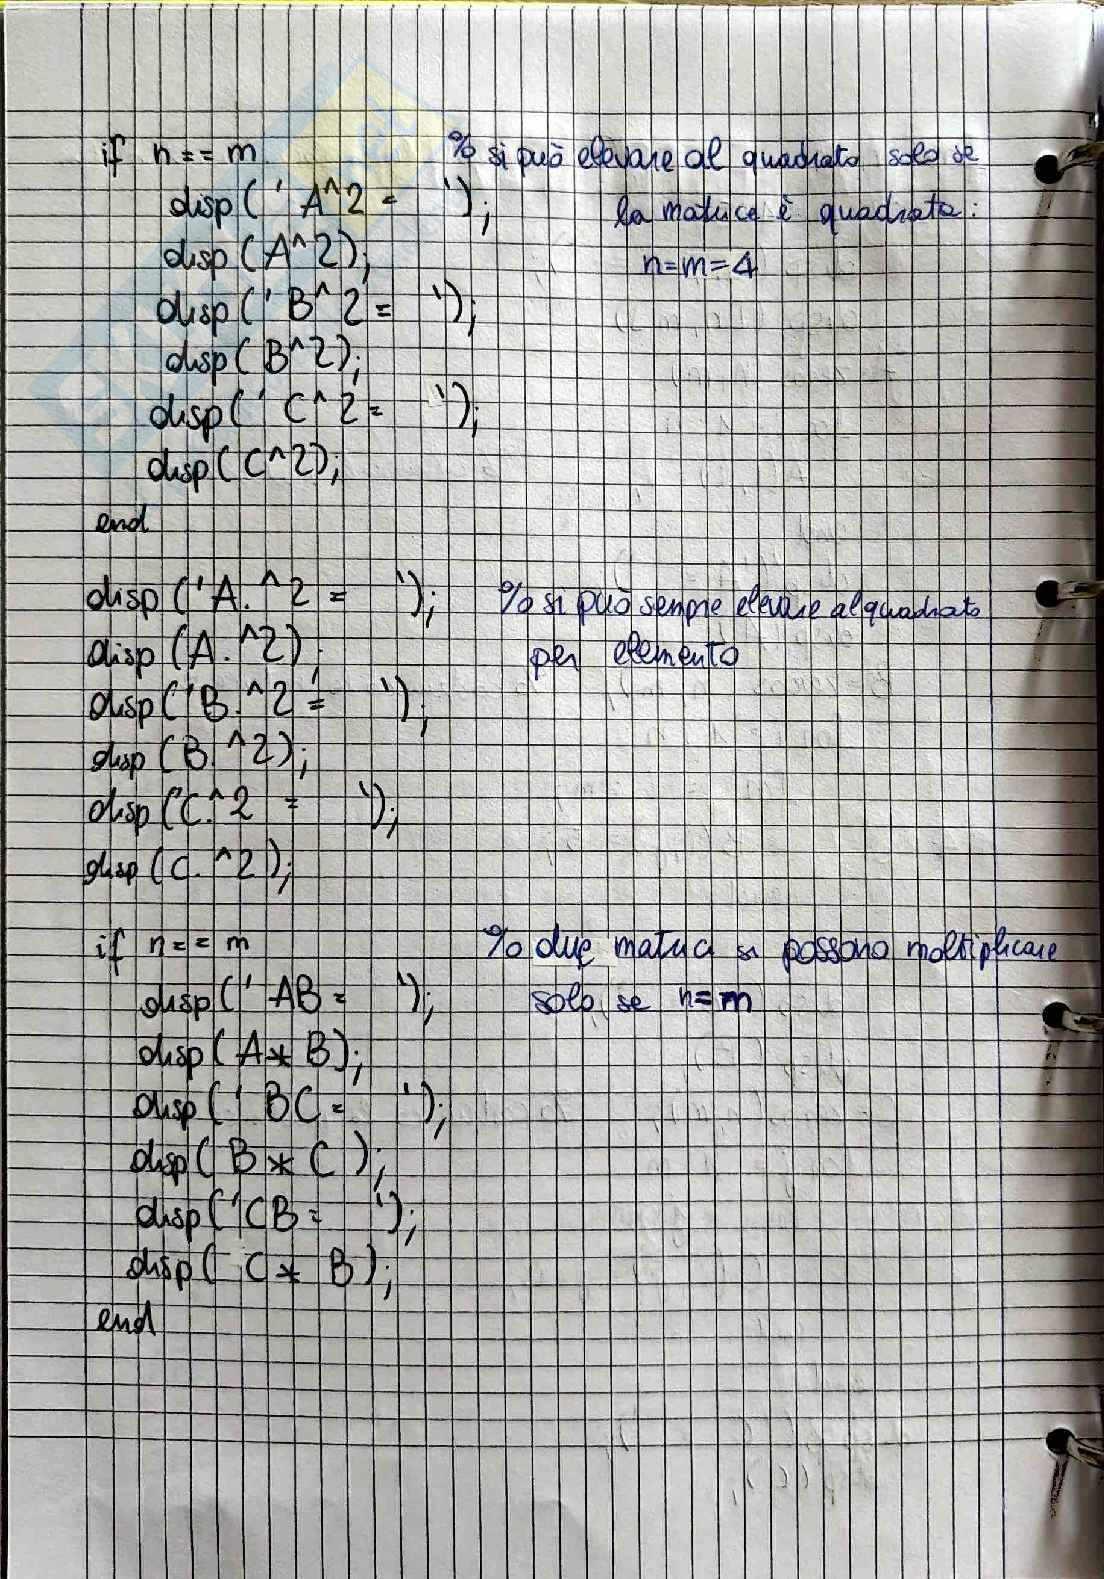 if n == m % si può elevare al quadrato solo se
disp (' A^2 = '); la matrice è quadrata:
disp (A^2); n=m=4
disp (' B^2 = ');
disp (B^2);
disp (' C^2 = ');
disp (C^2);
end
disp ('A.^2 = '); % si può sempre elevare al quadrato
disp (A.^2); per elemento
disp ('B.^2 = ');
disp (B.^2);
disp ('C.^2 = ');
disp (C.^2);
if n == m % due matrici si possono moltiplicare
disp (' AB = '); solo se n=m
disp (A * B);
disp (' BC = ');
disp (B * C);
disp ('CB = ');
disp (C * B);
end